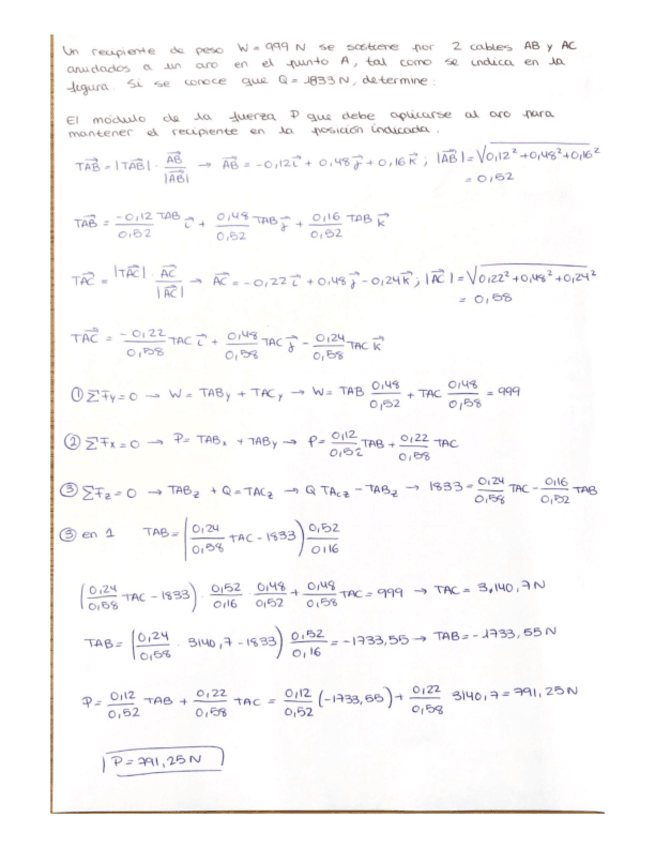 Un recipiente de peso W = 999 N se sostiene por 2 cables AB y AC
anudados a un aro en el punto A, tal como se indica en la
figura. Si se conoce que Q = 1833 N, determine:
El módulo de la fuerza P que debe aplicarse al aro para
mantener el recipiente en la posición indicada.
TAB⃗ = |TAB⃗| · AB⃗/|AB⃗| → AB⃗ = -0,12 i⃗ + 0,48 j⃗ + 0,16 k⃗ ; |AB⃗| = √(0,12² + 0,48² + 0,16²)
= 0,52
TAB⃗ = -0,12/0,52 TAB i⃗ + 0,48/0,52 TAB j⃗ + 0,16/0,52 TAB k⃗
TAC⃗ = |TAC⃗| · AC⃗/|AC⃗| → AC⃗ = -0,22 i⃗ + 0,48 j⃗ - 0,24 k⃗ ; |AC⃗| = √(0,22² + 0,48² + 0,24²)
= 0,58
TAC⃗ = -0,22/0,58 TAC i⃗ + 0,48/0,58 TAC j⃗ - 0,24/0,58 TAC k⃗
① ΣFy = 0 → W = TABy + TACy → W = TAB 0,48/0,52 + TAC 0,48/0,58 = 999
② ΣFx = 0 → P = TABx + TABy → P = 0,12/0,52 TAB + 0,22/0,58 TAC
③ ΣFz = 0 → TABz + Q = TACz → Q TACz - TABz → 1833 = 0,24/0,58 TAC - 0,16/0,52 TAB
③ en 1 TAB = (0,24/0,58 TAC - 1833) 0,52/0,16
(0,24/0,58 TAC - 1833) · 0,52/0,16 · 0,48/0,52 + 0,48/0,58 TAC = 999 → TAC = 3,140,7 N
TAB = (0,24/0,58 · 3140,7 - 1833) 0,52/0,16 = -1733,55 → TAB = -1733,55 N
P = 0,12/0,52 TAB + 0,22/0,58 TAC = 0,12/0,52 (-1733,55) + 0,22/0,58 3140,7 = 791,25 N
P = 791,25 N